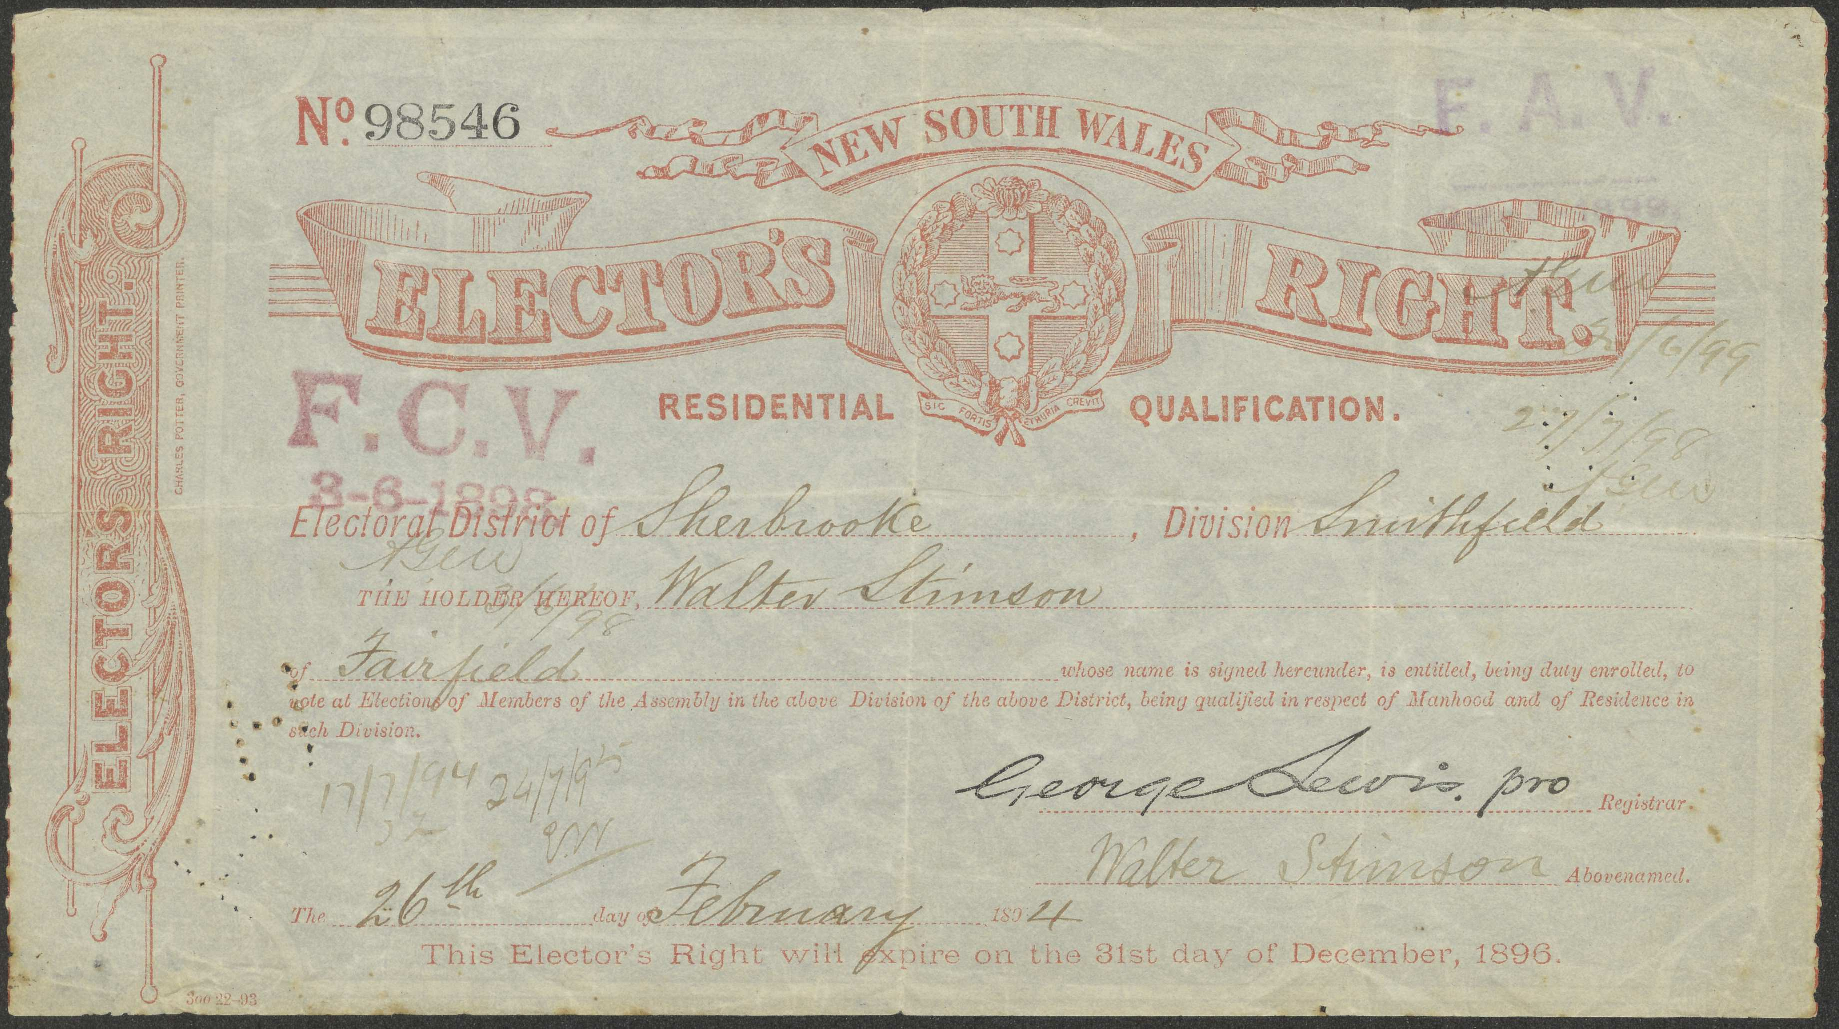 No. 98546
NEW SOUTH WALES
F. A. V.
ELECTOR'S RIGHT.
SIC FORTIS ETRURIA CREVIT
F.C.V.
RESIDENTIAL QUALIFICATION.
3-6-1898
/6/99
27/7/98
Electoral District of Sherbrooke, Division Smithfield
THE HOLDER HEREOF, Walter Stimson
3/6/98
of Fairfield whose name is signed hereunder, is entitled, being duly enrolled, to
vote at Elections of Members of the Assembly in the above Division of the above District, being qualified in respect of Manhood and of Residence in
such Division.
17/7/94 24/7/95
George Lewis. pro Registrar.
Walter Stimson Abovenamed.
The 26th day of February 1894
This Elector's Right will expire on the 31st day of December, 1896.
300 22-93
ELECTOR'S RIGHT.
CHARLES POTTER, GOVERNMENT PRINTER.